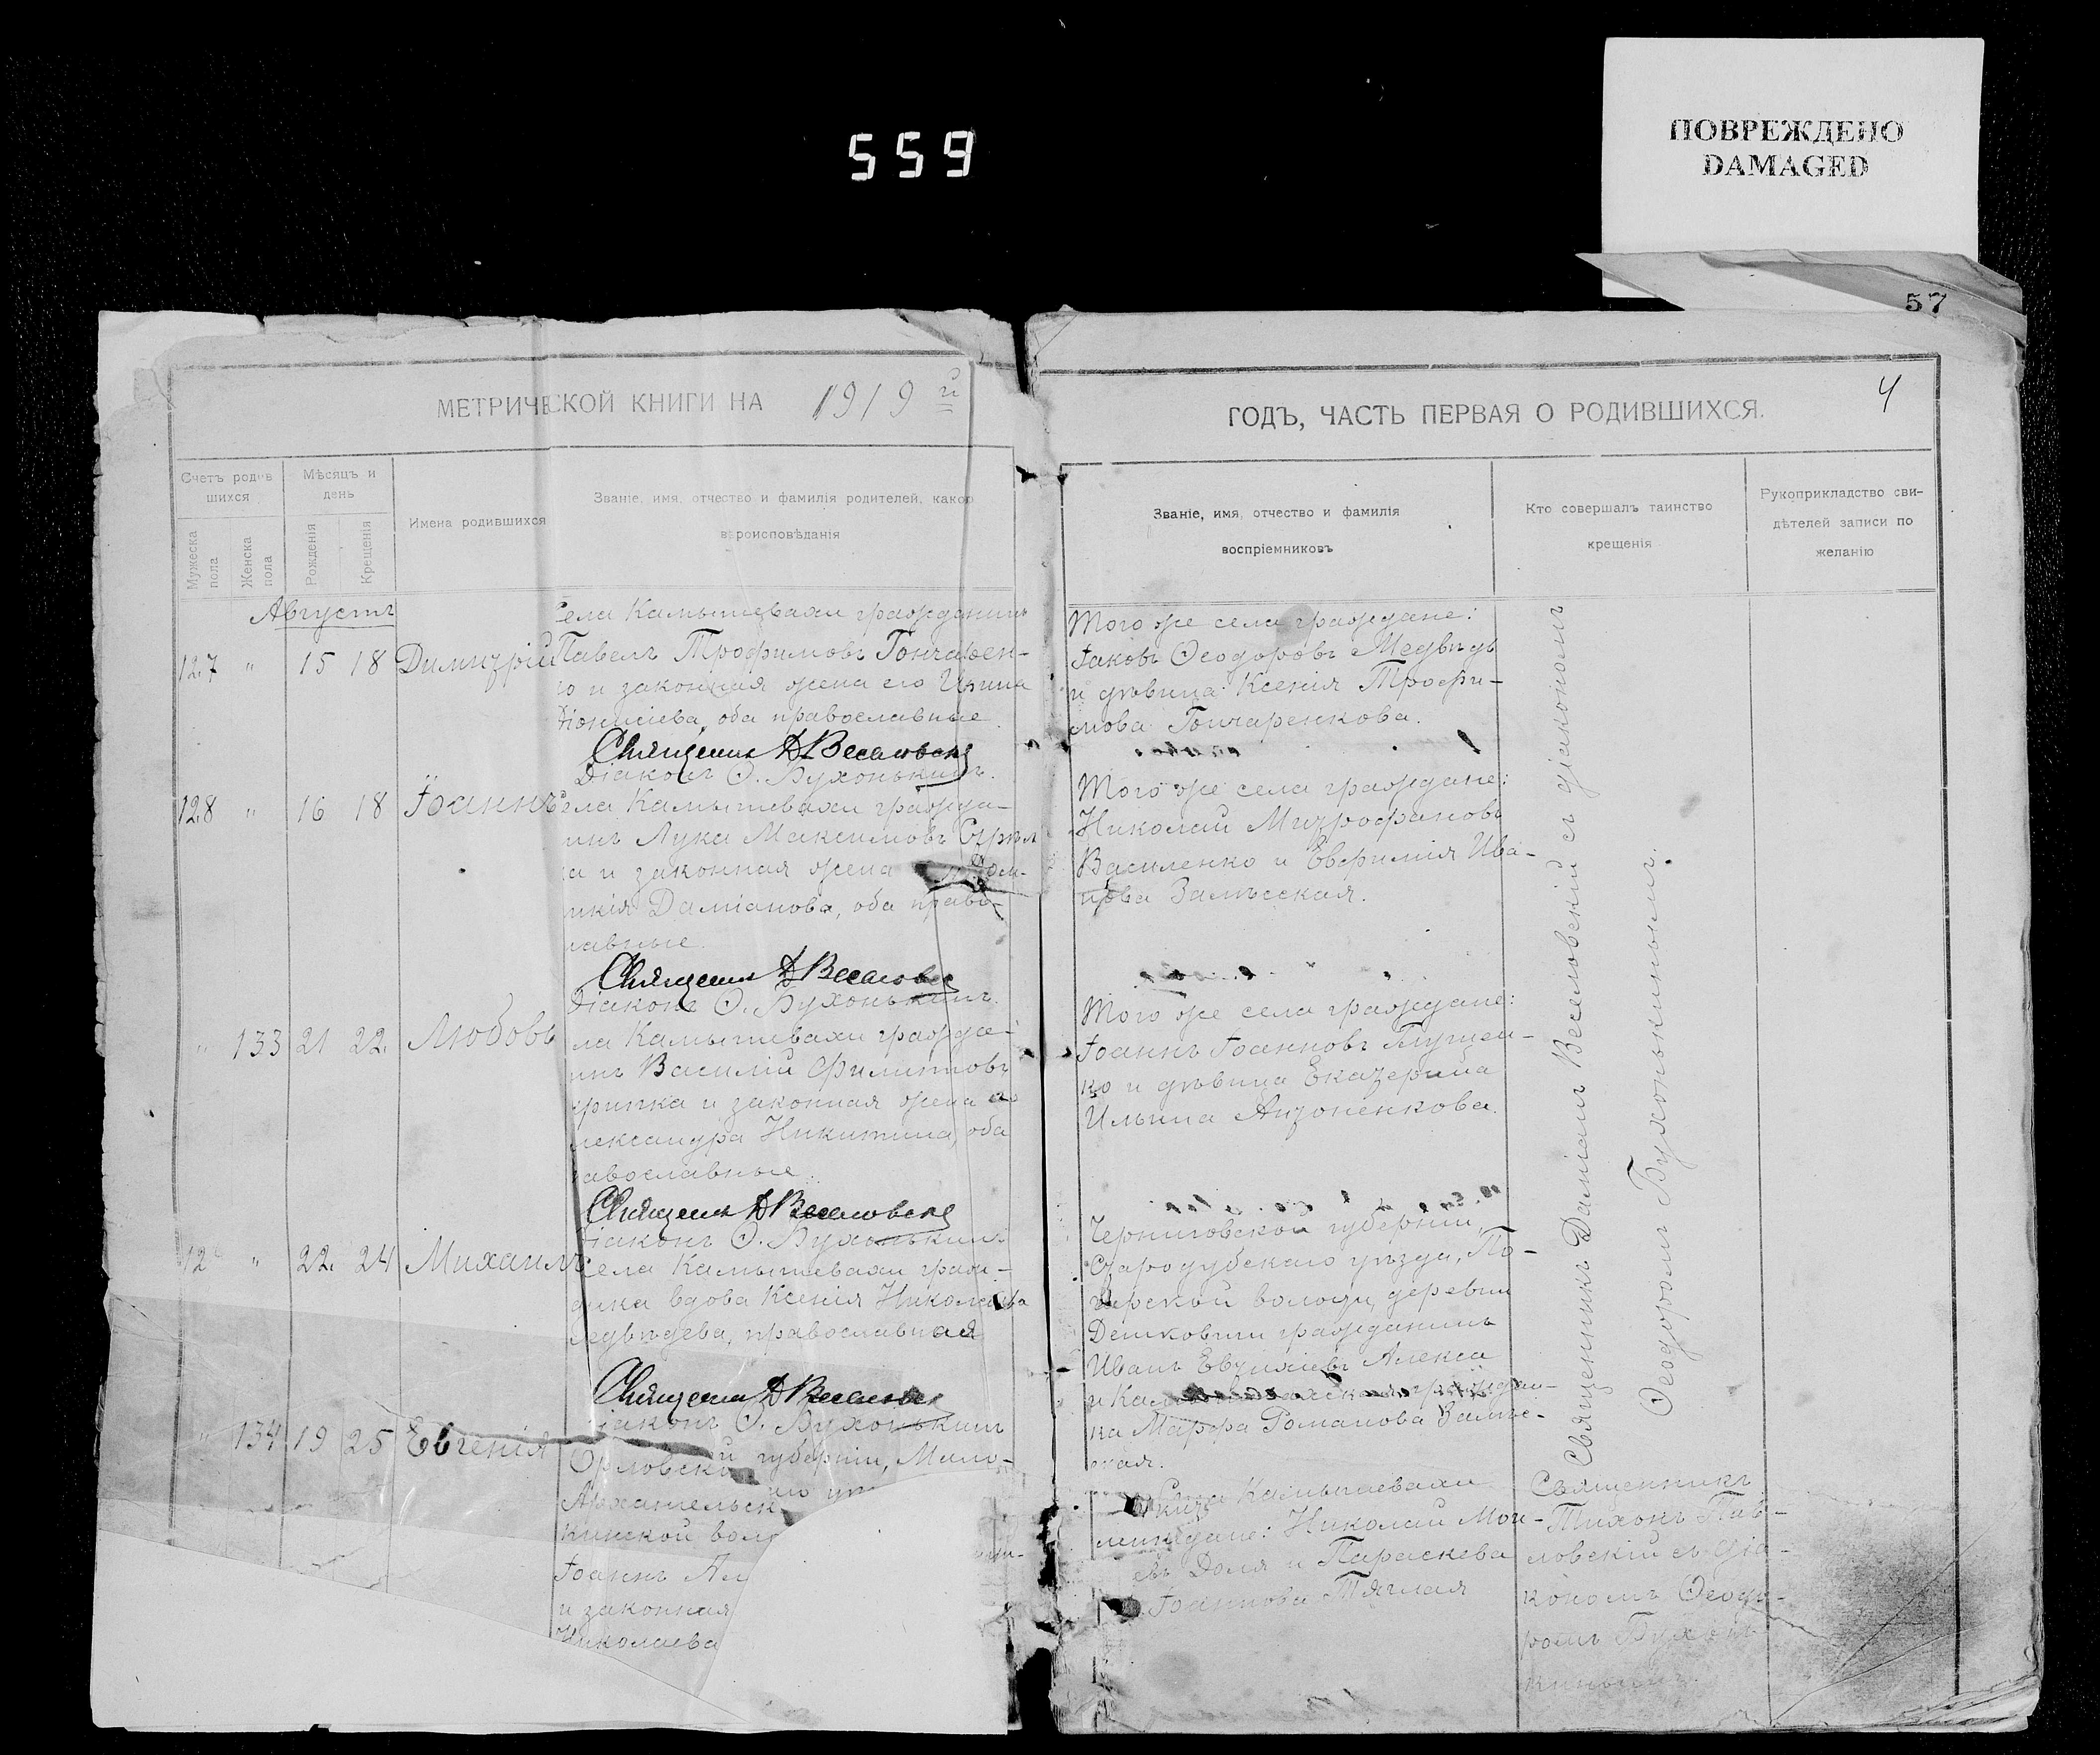 559
ПОВРЕЖДЕНО
DAMAGED
57
4
МЕТРИЧЕСКОЙ КНИГИ НА 1919 й
ГОДЪ, ЧАСТЬ ПЕРВАЯ О РОДИВШИХСЯ.
Счетъ родив
шихся
Мужеска пола
Женска пола
Мѣсяцъ и
день
Рожденія
Крещенія
Имена родившихся
Званіе, имя, отчество и фамилія родителей, какого
вѣроисповѣданія
Званіе, имя, отчество и фамилія
воспріемниковъ
Кто совершалъ таинство
крещенія
Рукоприкладство сви-
дѣтелей записи по
желанію
Августъ
127 " 15 18 Димитрій
Села Камышевахи гражданинъ
Павелъ Трофимовъ Гончарен-
ко и законная жена его Ирина
Діонисіева, оба православные.
Священникъ Д Веселовскій
Діаконъ Ѳ. Бухонькинъ.
Того же села граждане:
Іаковъ Ѳеодоровъ Медвѣдь
и дѣвица Ксенія Трофи-
мова Гончаренкова.
128 " 16 18 Іоаннъ
Села Камышевахи гражда-
инъ Лука Максимовъ
а и законная жена его Дом-
икія Даміанова, оба право-
лавные.
Священникъ Д Веселовскій
Діаконъ Ѳ. Бухонькинъ.
Того же села граждане:
Николай Митрофановъ
Василенко и Евфимія Ива-
нова Залѣсская.
" 133 21 22 Любовь
ла Камышевахи гражда-
инъ Василій Филиповъ
крипка и законная жена его
лександра Никитина, оба
авославные.
Священникъ Д Веселовскій
Діаконъ Ѳ. Бухонькинъ
Того же села граждане:
Іоаннъ Іоанновъ Глущен-
ко и дѣвица Екатерина
Ильина Антоненкова.
12 " 22 24 Михаилъ
Села Камышевахи граж-
данка вдова Ксенія Николаева
Медвѣдева, православная
Священникъ Д Веселовскій
Діаконъ Ѳ. Бухонькинъ
Черниговской губерніи,
Стародубскаго уѣзда, По-
нурской волости, деревни
гражданинъ
Иванъ Евтихіевъ Алекса
и Камышевахская граждан-
ка Марфа Романова Залѣс-
ская.
Священникъ Даміанъ Веселовскій съ діакономъ
Ѳеодоромъ Бухонькинымъ.
" 134 19 25 Евгенія
Орловской губерніи, Мало-
Архангельск
кинской вол
Іоаннъ Ал
и законная
Николаева
Села Камышевахи
граждане: Николай Мои-
евъ Доля и Параскева
Іоаннова Тяглая
Священникъ
Тихонъ Пав-
ловскій съ діа-
кономъ Ѳеодо-
ромъ Бухонь-
кинымъ.